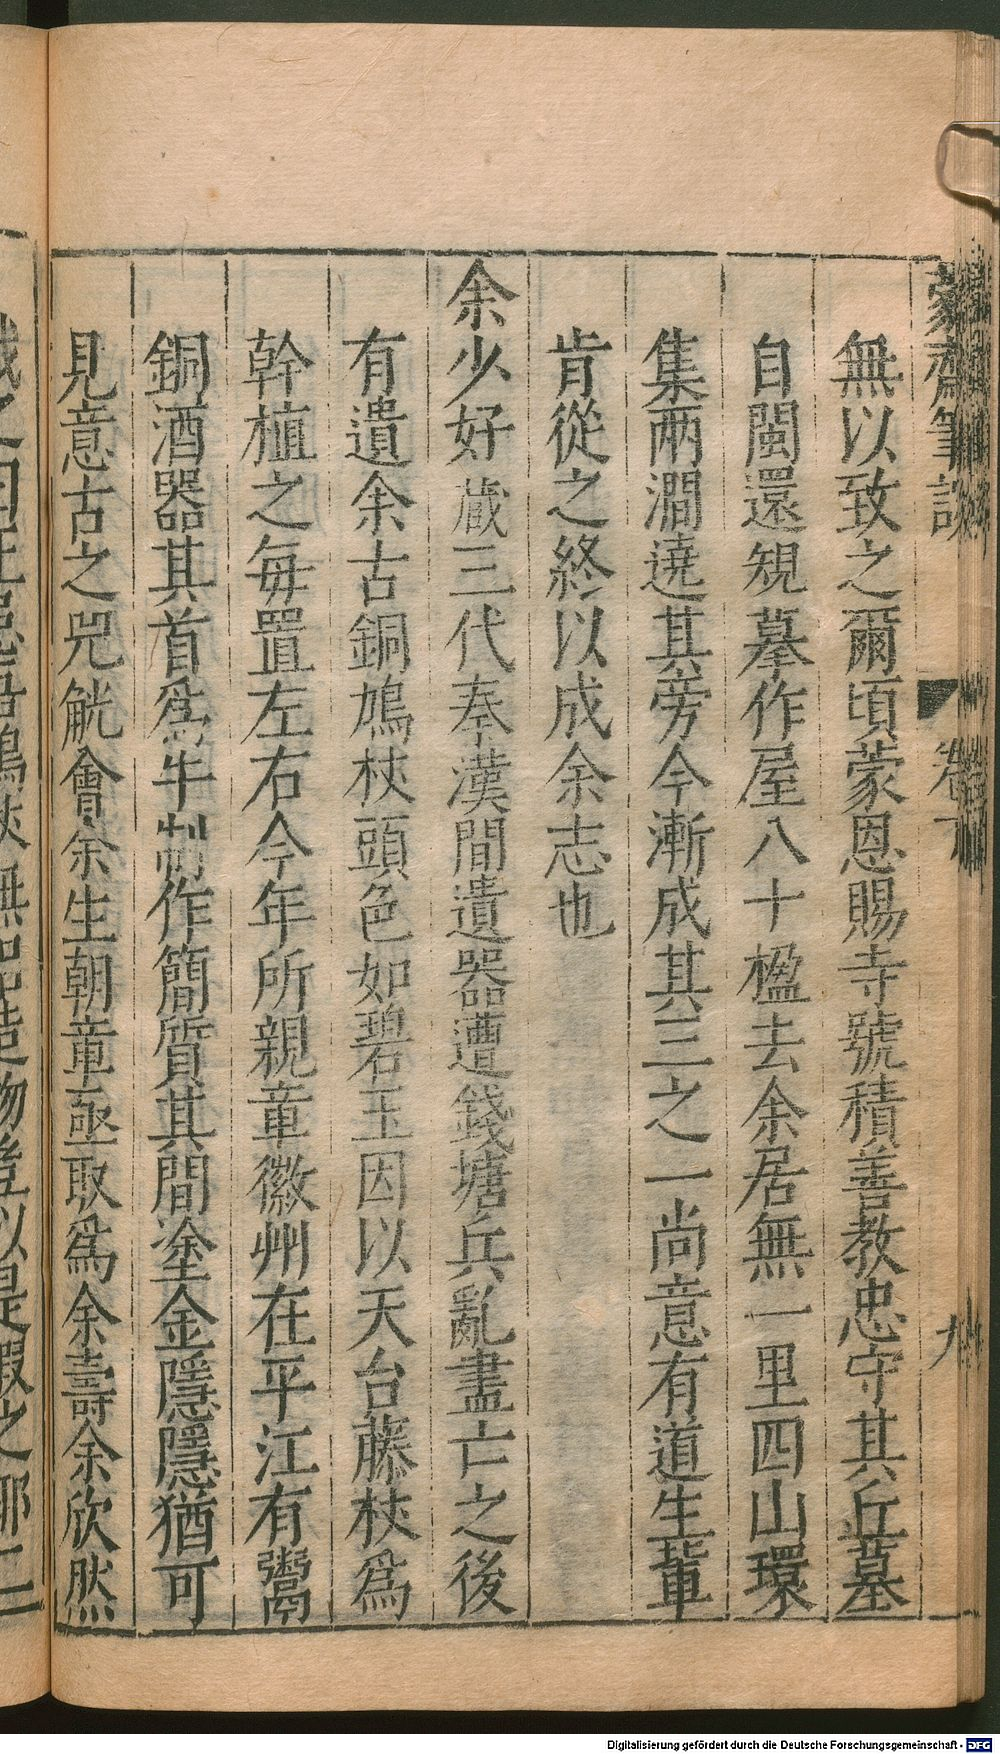 蒙齋筆談
卷下
九
無以致之爾頃蒙恩賜寺號積善教忠守其丘墓
自閩還規摹作屋八十楹去余居無一里四山環
集兩澗遶其旁今漸成其三之一尚意有道生輩
肯從之終以成余志也
余少好藏三代秦漢間遺器遭錢塘兵亂盡亡之後
有遺余古銅鳩杖頭色如碧玉因以天台藤杖爲
幹植之每置左右今年所親章徽州在平江有鬻
銅酒器其首爲牛制作簡質其間塗金隱隱猶可
見意古之兕觥會余生朝章亟取爲余壽余欣然
無
造物豈以是假之耶二
Digitalisierung gefördert durch die Deutsche Forschungsgemeinschaft - DFG